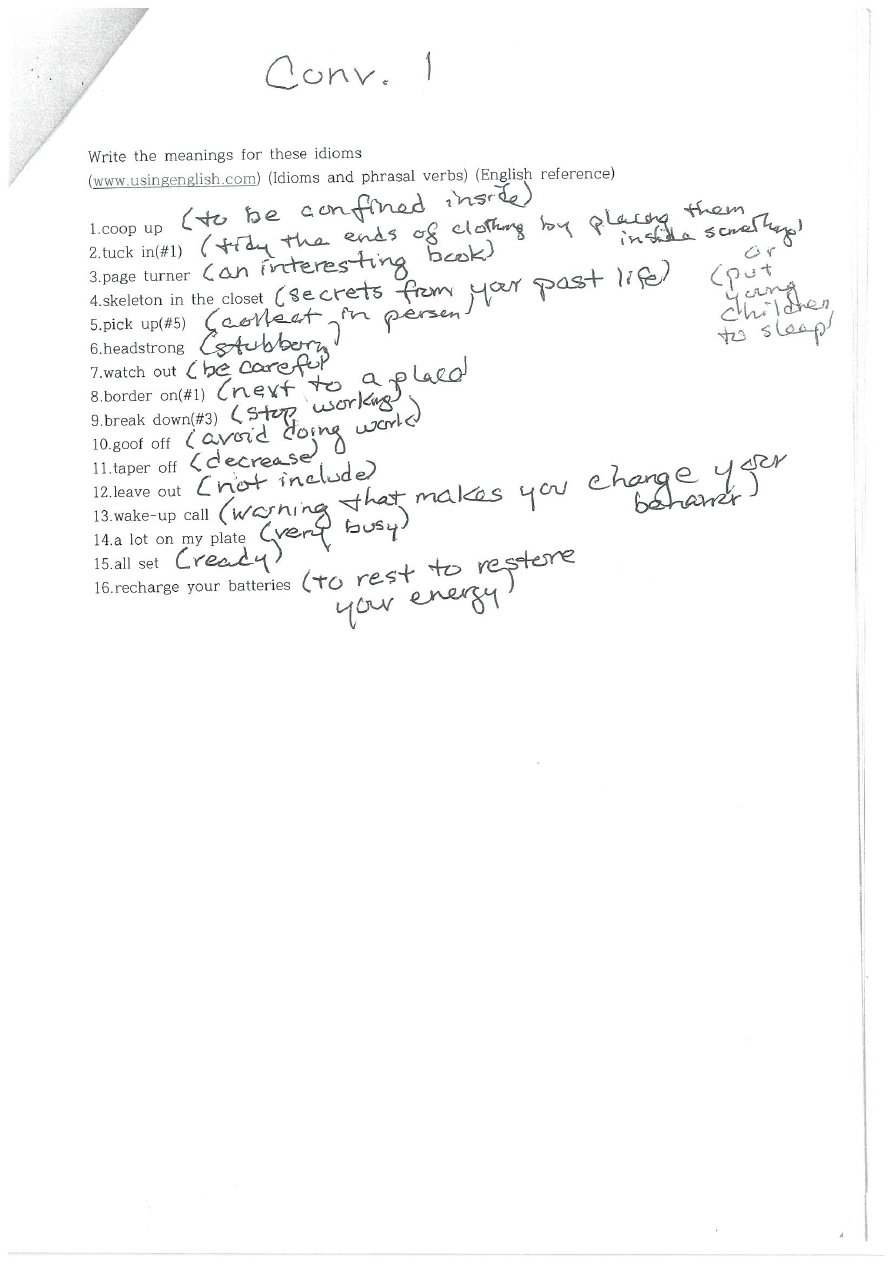 Conv. 1
Write the meanings for these idioms
(www.usingenglish.com) (Idioms and phrasal verbs) (English reference)
1.coop up (to be confined inside)
2.tuck in(#1) (tidy the ends of clothing by placing them inside something)
or
(put
young
children
to sleep)
3.page turner (an interesting book)
4.skeleton in the closet (secrets from your past life)
5.pick up(#5) (collect in person)
6.headstrong (stubborn)
7.watch out (be careful)
8.border on(#1) (next to a place)
9.break down(#3) (stop working)
10.goof off (avoid doing work)
11.taper off (decrease)
12.leave out (not include)
13.wake-up call (warning that makes you change your
behavior)
14.a lot on my plate (very busy)
15.all set (ready)
16.recharge your batteries (to rest to restore
your energy)